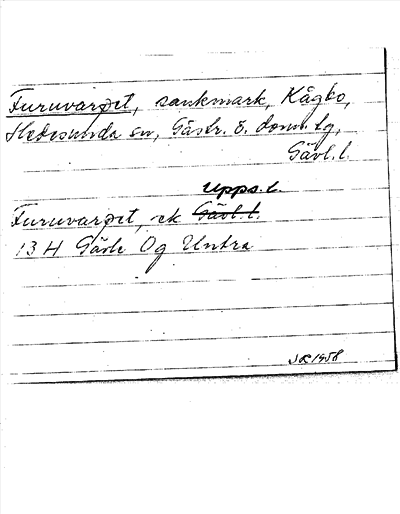 Furuvarpet, sankmark, Kågbo,
Hedesunda sn, Gästr. ö. doms. tg,
Gävl. l.
Upps. l.
Furuvarpet, ek Gävl. l.
13 H Gävle Og Untra
1958